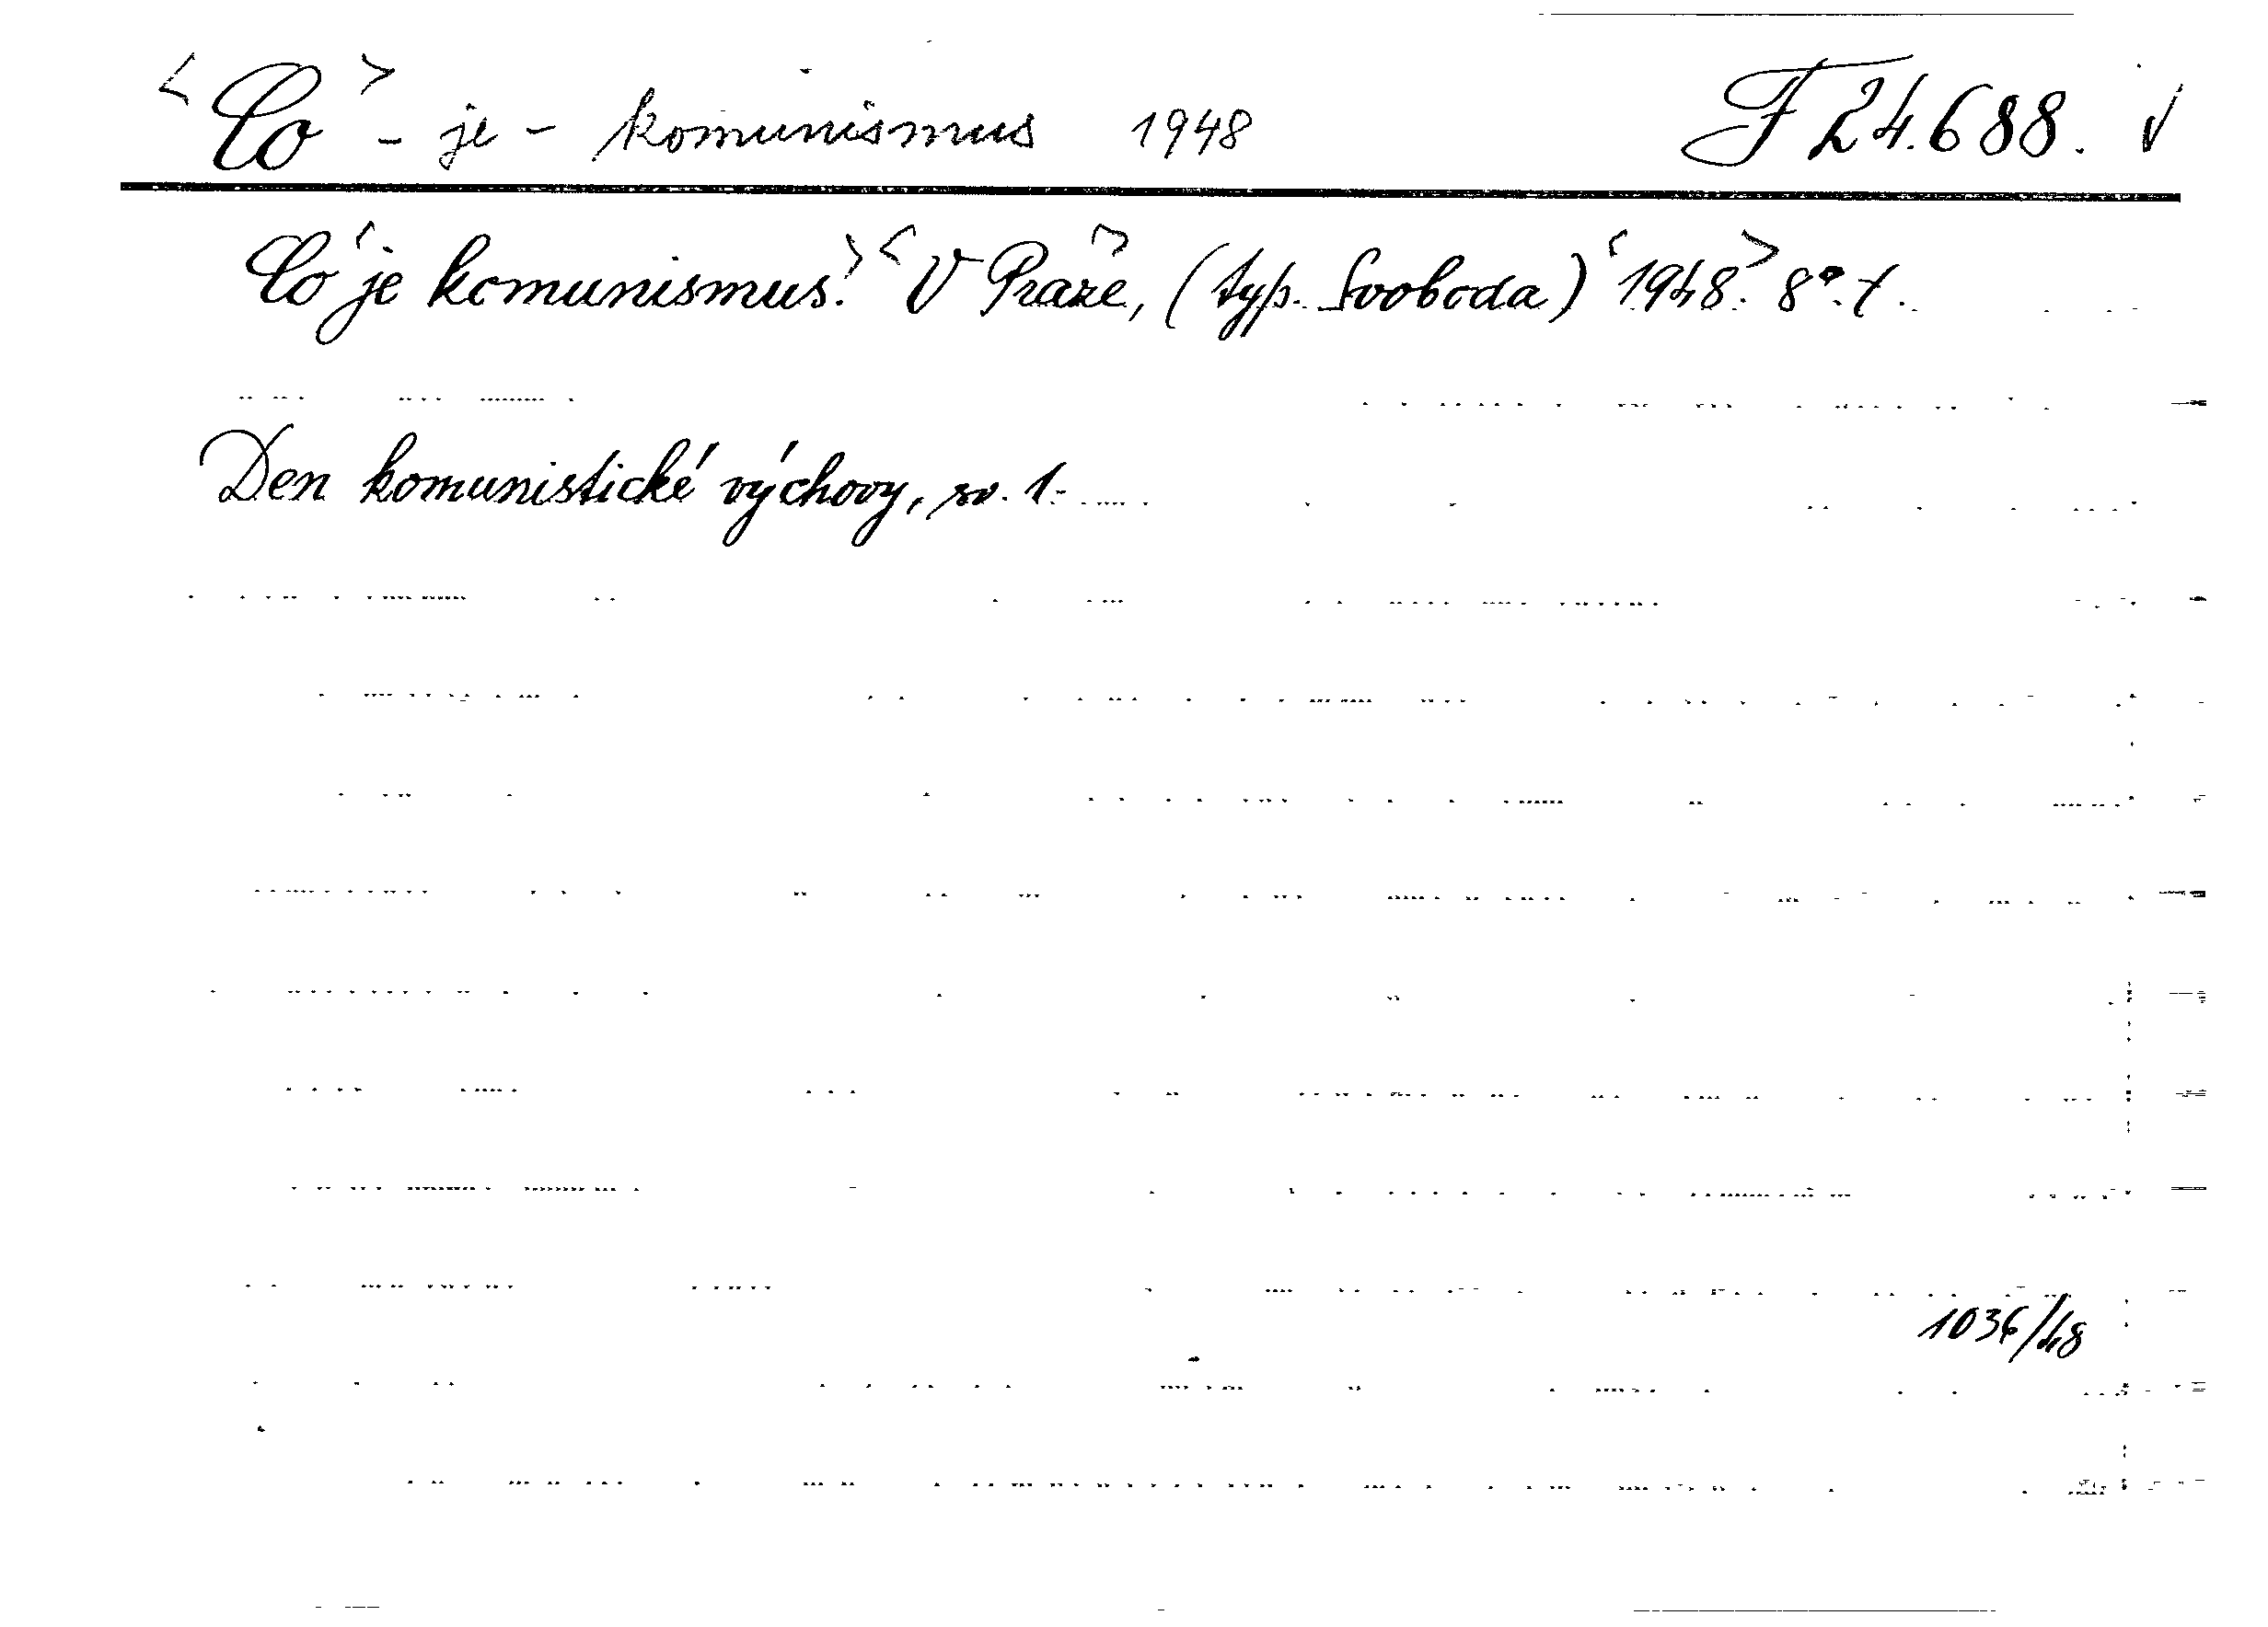 <Co> - je - komunismus 1948 F 24.688. ✓
Co <je komunismus.> <V Praze>, (typ. Svoboda) <1948.> 8°.
Den komunistické výchovy, sv. 1.
1036/48